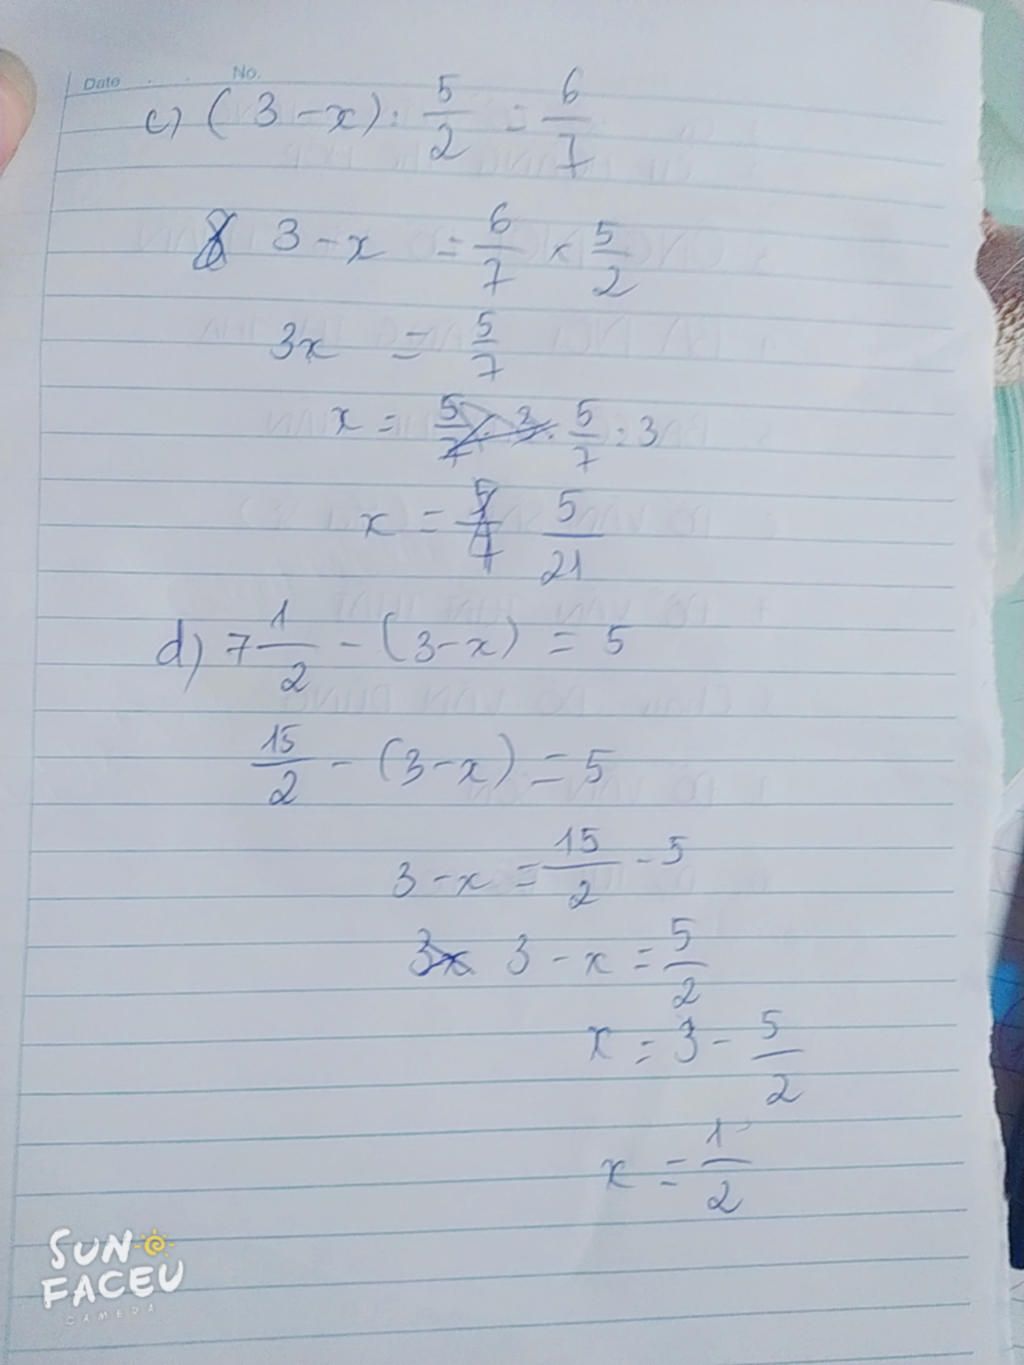 Date . . No.
c) (3 - x) : 5/2 = 6/7
3 - x = 6/7 × 5/2
3x = 5/7
x = 5/7 : 3
x = 5/21
d) 7 1/2 - (3 - x) = 5
15/2 - (3 - x) = 5
3 - x = 15/2 - 5
3x 3 - x = 5/2
x = 3 - 5/2
x = 1/2
SUN
FACEU
CAMERA